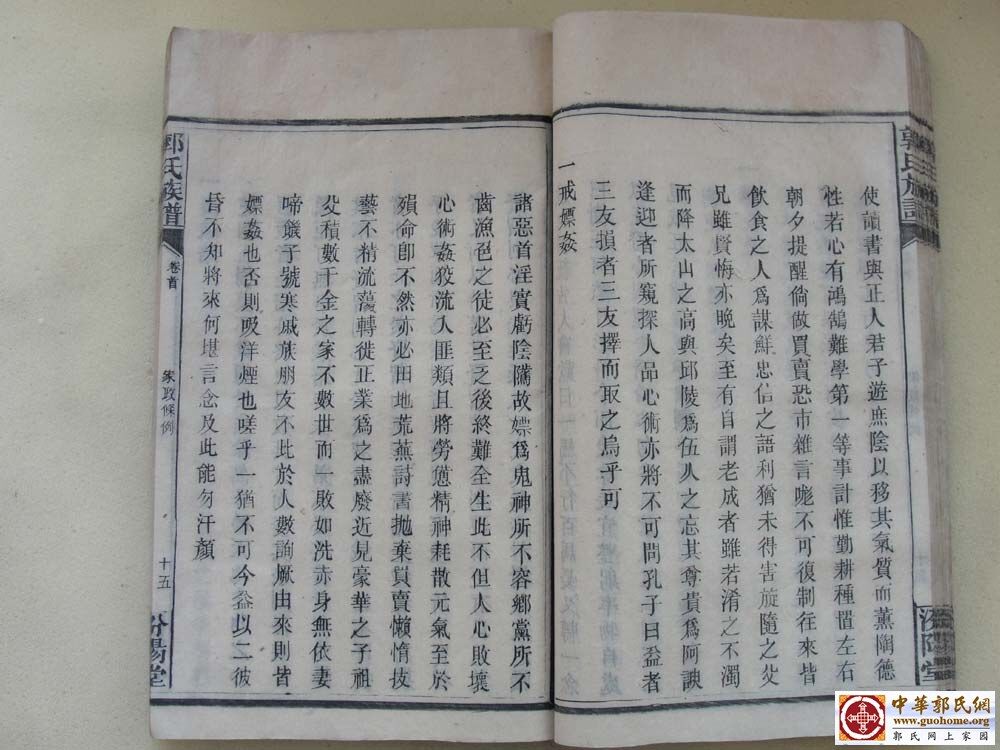 郭氏族譜
使讀書與正人君子遊庶陰以移其氣質而薰陶德
性若心有鴻鵠難學第一等事計惟勤耕種置左右
朝夕提醒倘做買賣恐市雜言嘵不可復制往來皆
飲食之人爲謀鮮忠信之語利猶未得害旋隨之父
兄雖賢悔亦晚矣至有自謂老成者雖若淆之不濁
而降太山之高與邱陵爲伍人之忘其尊貴爲阿諛
逢迎者所窺探人品心術亦將不可問孔子曰益者
三友損者三友擇而取之烏乎可
一戒嫖姦
汾陽堂
諸惡首淫實虧陰騭故嫖爲鬼神所不容鄉黨所不
齒漁色之徒必至之後終難全生此不但人心敗壞
心術姦狡流入匪類且將勞憊精神耗散元氣至於
殞命卽不然亦必田地荒蕪詩書拋棄買賣懶惰技
藝不精流蕩轉徙正業爲之盡廢近見豪華之子祖
父積數千金之家不數世而一敗如洗赤身無依妻
啼饑子號寒戚族朋友不比於人數詢厥由來則皆
嫖姦也否則吸洋煙也嗟乎一猶不可今益以二彼
昏不知將來何堪言念及此能勿汗顏
郭氏族譜
卷首
家政條例
十五
汾陽堂
中華郭氏網
www.guohome.org
郭氏网上家园